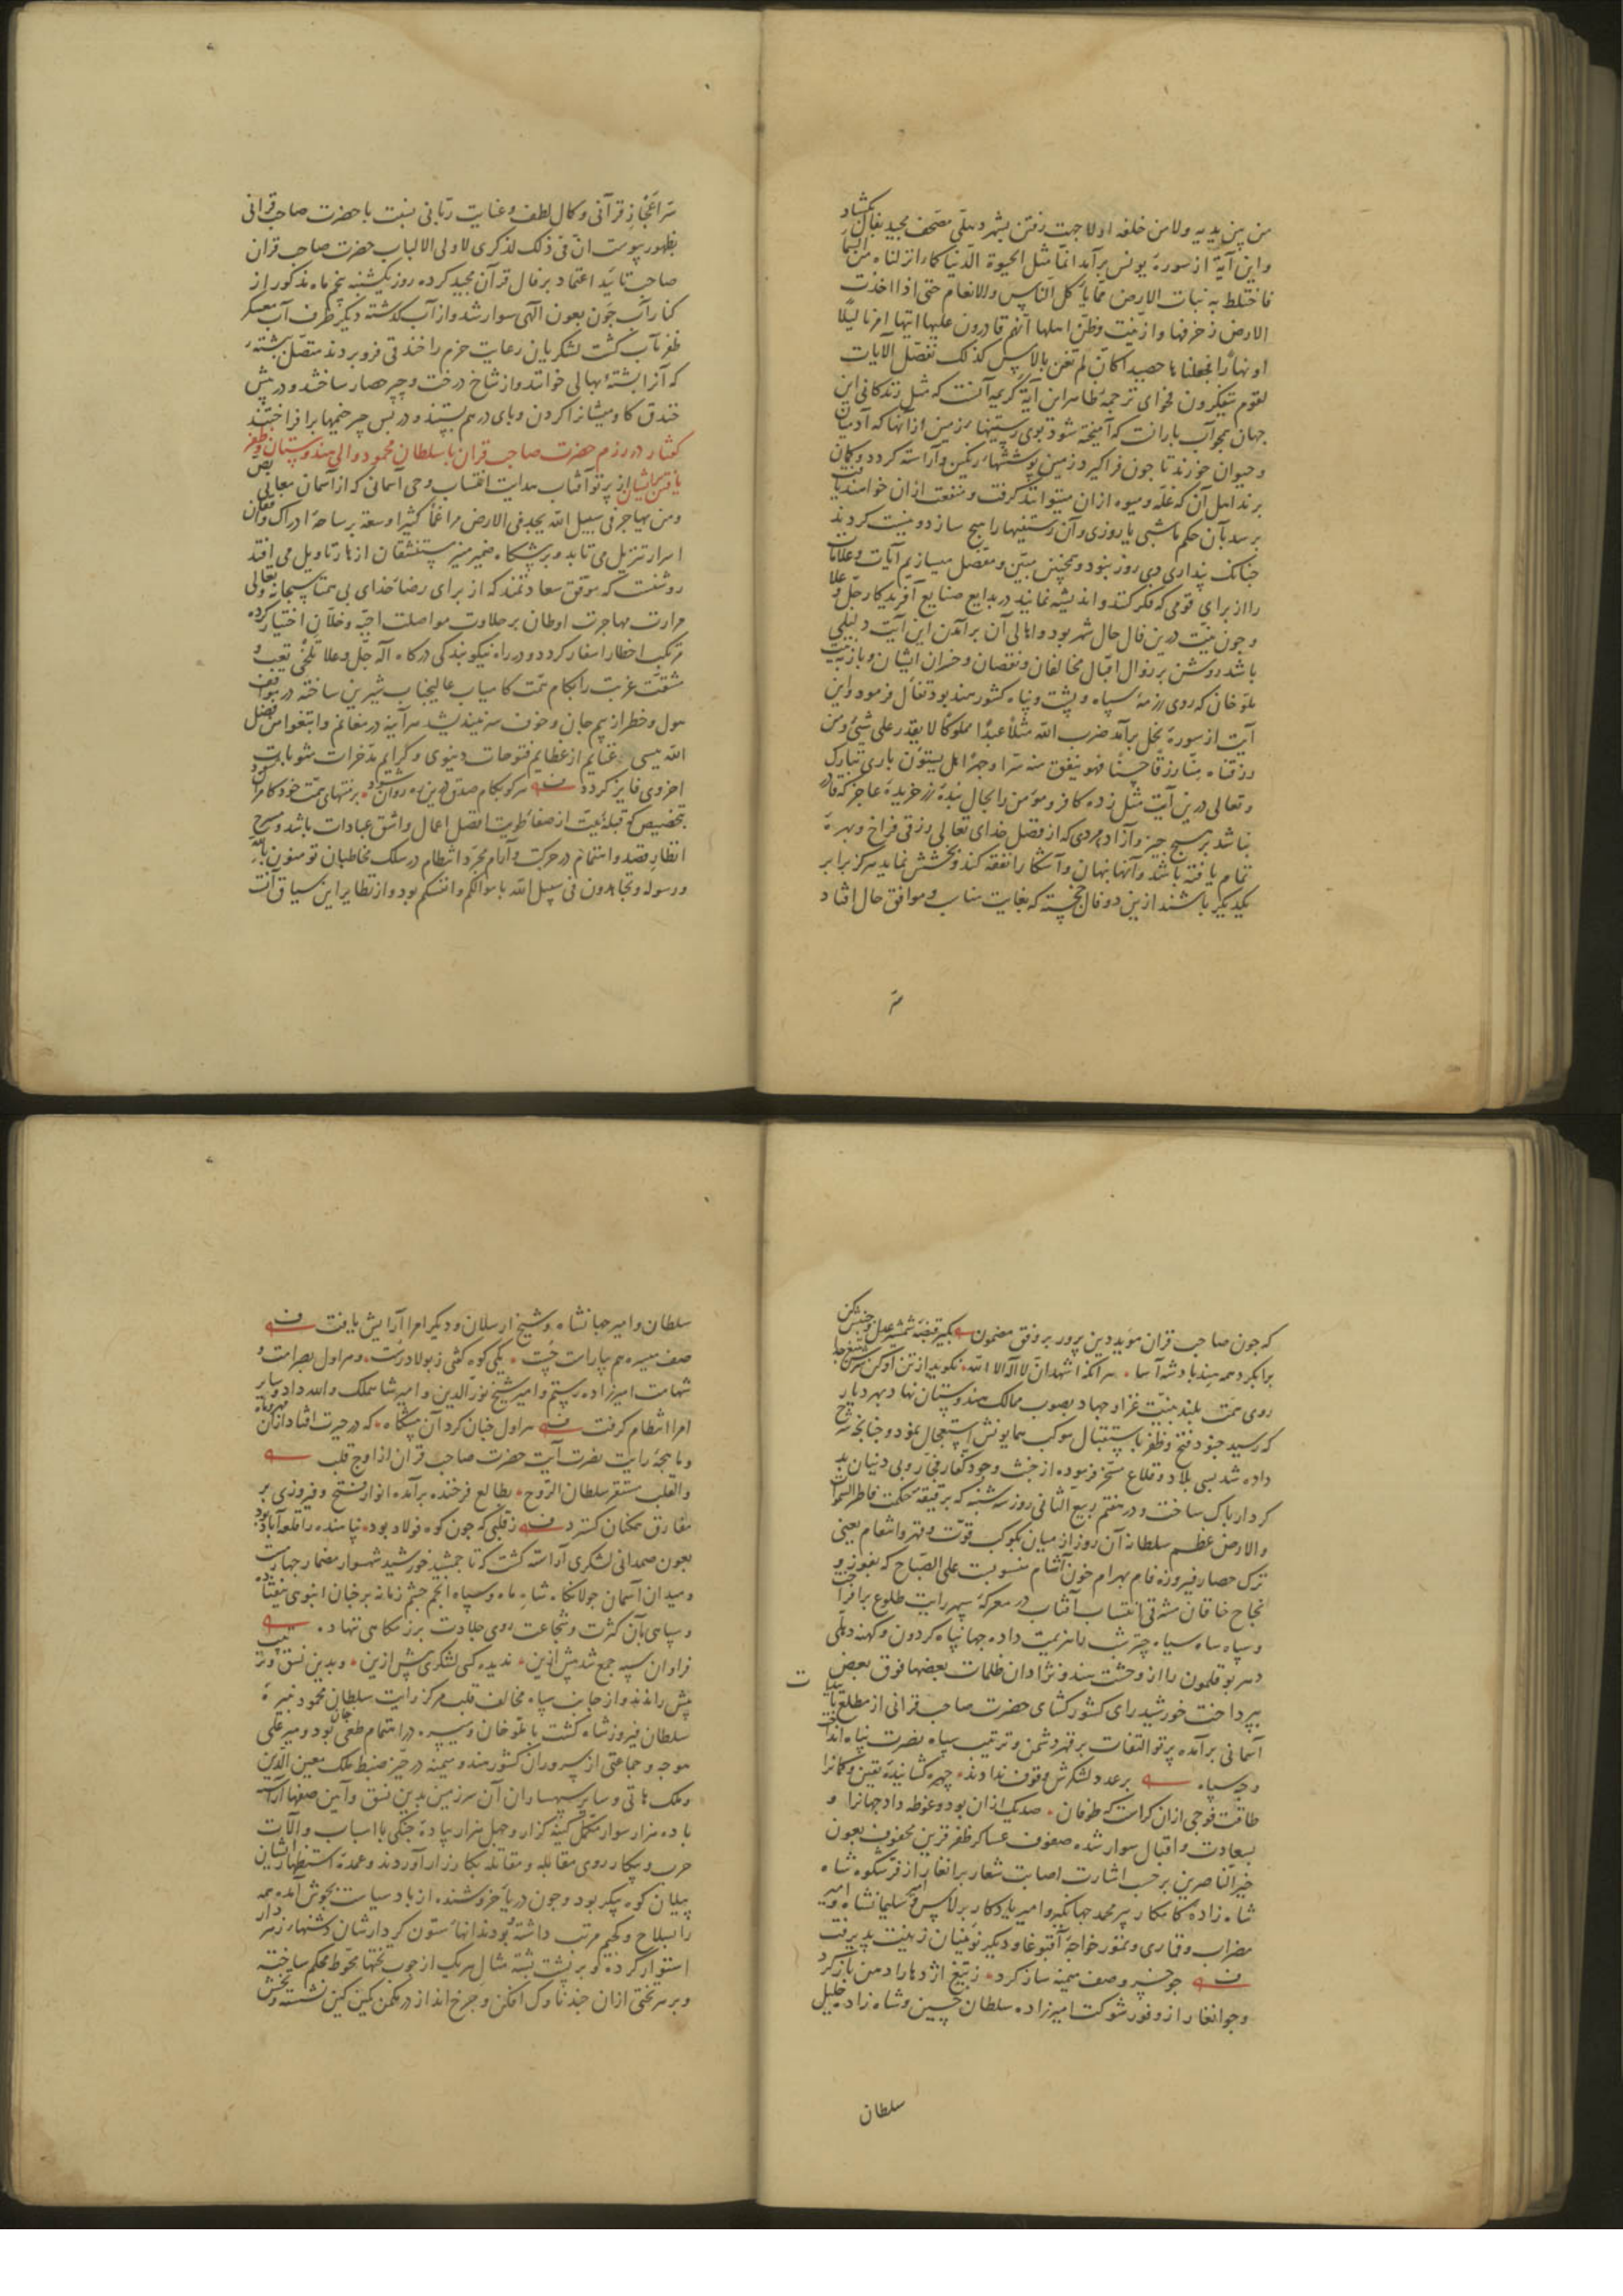 من بین یدیه ولا من خلفه اولا جهت رفتن بشهر دهلی مصحف مجید بفال بکشاد
و این آیة از سورهٔ یونس برآمد انما مثل الحیوة الدنیا کماء انزلناه من السماء
فاختلط به نبات الارض مما یاکل الناس والانعام حتی اذا اخذت
الارض زخرفها وازینت وظن اهلها انهم قادرون علیها اتیها امرنا لیلا
او نهارا فجعلناها حصیدا کان لم تغن بالامس کذلک نفصل الایات
لقوم یتفکرون فحوای ترجمهٔ ظاهر این آیهٔ کریمه آنست که مثل زندکانی این
جهان همچو آب بارانست که آمیخته شود بوی رستنیها زمین از آنها که آدمیان
و حیوان خورند تا چون فراکیرد زمین پوششهای رنکین و آراسته کردد و کمان
برند اهل آن که غله و میوه ازان میتوانند کرفت و منفعت ازان خواهند یافت
برسد بآن حکم ما شبی یا روزی و آن رستنیها را هیچ سازد و نیست کردیده
چنانک پنداری دی روز نبود و همچنین مبین و مفصل میسازیم آیات و علامات
را از برای قومی که فکر کنند و اندیشه نمایند در بدایع صنایع آفریدکار جل و علا
و چون نیت درین فال حال شهر بود و اهالی آن برآمدن این آیت دلیلی
باشد روشن بر زوال اقبال مخالفان و نقصان و خسران ایشان و باز بنیت
ملو خان که روی رزمهٔ سپاه و پشت و پناه کشور هند بود تفأل فرمود و این
آیت از سورهٔ نحل برآمد ضرب الله مثلا عبدا مملوکا لا یقدر علی شیء و من
رزقناه منا رزقا حسنا فهو ینفق منه سرا وجهرا هل یستوون باری تبارک
و تعالی درین آیت مثل زده کافر و مؤمن را بحال بندهٔ زرخریدهٔ عاجز که قادر
نباشد بر هیچ چیز و آزاد مردی که از فضل خدای تعالی رزقی فراخ و بهرهٔ
تمام یافته باشد و آنها پنهان و آشکارا نفقه کند و بخشش نماید هرکز برابر
یکدیکر باشند ازین دو فال خجسته که بغایت مناسب و موافق حال افتاد
سر
سر اعجاز قرآنی و کمال لطف و عنایت ربانی نسبت با حضرت صاحب قرانی
بظهور پیوست ان فی ذلک لذکری لاولی الالباب حضرت صاحب قران
صاحب تایید اعتماد بر فال قرآن مجید کرده روز یکشنبه پنجم ماه مذکور از
کنار آب جون بعون الهی سوار شد و از آب کذشته دیکر طرف آب معسکر
ظفر مآب کشت لشکریان رعایت حزم را خندقی فرو بردند متصل بپشتهٔ
که آنرا پشتهٔ بهالی خوانند و از شاخ درخت و چپر حصار ساختند و در پیش
خندق کاومیشانرا کردن و پای درهم بستند و در پس چپر خیمها برافراختند
کفتار در رزم حضرت صاحب قران با سلطان محمود والی هندوستان و ظفر
یافتن بر ایشان از پرتو آفتاب هدایت انتساب وحی آسمانی که از آسمان معانی نص
ومن یهاجر فی سبیل الله یجد فی الارض مراغما کثیرا وسعة بر ساحهٔ ادراک واقفان
اسرار تنزیل می تابد و بر پیشکاه ضمیر منیر مستنشقان ازهار تاویل می افتد
روشنست که هر موفق سعادتمند که از برای رضا خدای بی همتا سبحانه و تعالی
مرارت مهاجرت اوطان بر حلاوت مواصلت احبه و خلان اختیار کرده
مرتکب اخطار اسفار کردد و در راه نیکو بندکی درکاه اله جل و علا تلخی تعب و
مشقت غربت را بکام همت کامیاب عالیجناب شیرین ساخته در مواقف
هول و خطر از بیم جان و خوف سر نیندیشد هرآینه در مغانم وابتغوا من فضل
الله بسی غنایم از عظایم فتوحات دنیوی و کرایم مدخرات مثوبات
اخروی فایز کردد هرکو بکام صدق درین ره روان شود بر منتهای همت خود کامران شود
بتخصیص که قبلهٔ نیت از صفا طویت افضل اعمال و اشق عبادات باشد و مسرح
انظار قصد و اهتمام در حرکت و آرام مجرد انتظام در سلک مخاطبان تؤمنون بالله
ورسوله وتجاهدون فی سبیل الله باموالکم وانفسکم بود و از نظایر این سیاق آنست
که چون صاحب قران مؤید دین پرور بر وفق مضمون بکیر قبضهٔ شمشیر عدل و جنبش کن
برآنکه ... اشهد ان لا اله الا الله نکوید از تن او کن سرش بتیغ جدا
روی همت بلند بنیت غزا و جهاد بصوب ممالک هندوستان نهاد و بهر دیار
که رسید جنود فتح و ظفر باستقبال موکب همایونش استعجال نمود و چنانچه شرح
داده شد بسی بلاد و قلاع مسخر فرموده از خبث وجود کفار فجار و بی دینان بد
کردار پاک ساخت و در هفتم ربیع الثانی روز سه شنبه که بر قبضهٔ حکمت فاطر السموات
والارض عظم سلطانه آن روز از میان بکوکب قوت و قهر و انتقام یعنی
ترک حصار فیروزه فام بهرام خون آشام منسوبست علی الصباح که بفوز و
نجاح خاقان مشرقی انتساب آفتاب در معرکهٔ سپهر رایت طلوع برافراخت
و سپاه سیاه چتر شب را هزیمت داده جهان پناه کردون و کهنه دهلی
دهر بوقلمون را از وحشت هندو نژادان ظلمات بعضها فوق بعض
بپرداخت خورشید رای کشور کشای حضرت صاحب قرانی از مطلع تایید
آسمانی برآمده پرتو التفات بر قهر دشمن و ترتیب سپاه نصرت پناه انداخت
و چه سپاه بر عدد لشکرش وقوف ندادند چهره کشایندهٔ یقین و کمانرا
طاقت فوجی ازان کراست که طوفان صد یک ازان بود و غوطه داد جهانرا و
بسعادت و اقبال سوار شده صفوف عساکر ظفر قرین محفوف بعون
خیر الناصرین بر حسب اشارت اصابت شعار برانغار از فر شکوه شاه
شاه زادهٔ کامکار پیر محمد جهانکیر و امیر یادکار برلاس و امیر سلیمانشاه و امیر
مضراب و قماری و تمور خواجهٔ آقبوغا و دیکر نوینان زینت پذیرفت
چو خسرو صف میمنه ساز کرد ز تیغ اژدها را دهن باز کرد
و جوانغار از وفور شوکت امیرزاده سلطان حسین و شاه زاده خلیل
سلطان
سلطان و امیر جهانشاه و شیخ ارسلان و دیکر امرا آرایش یافت
صف میسره هم بیاراست چست یکی کوه کفتی ز پولاد رست و هراول بصرامت و
شهامت امیرزاده رستم و امیر شیخ نورالدین و امیر شاهملک و الله داد و سایر
امرا انتظام کرفت هراول چنان کرد آن پیشکاه که در حیرت افتاد ازان مهر و ماه
و ماهچهٔ رایت نصرت آیت حضرت صاحب قران از اوج قلب
والقلب مستقر سلطان الروح بطالع فرخنده برآمده انوار فتح و فیروزی بر
مفارق همکنان کسترد ز قلبی که چون کوه فولاد بود پناهنده را قلعه آباد بود
بعون صمدانی لشکری آراسته کشت که تا جمشید خورشید شهسوار مضمار چهارمست
و میدان آسمان جولانکاه شاه ماه و سپاه انجم چشم زمانه بر چنان انبوهی نیفتاده
و سپاهی بآن کثرت و شجاعت روی جلادت برزمکاهی ننهاد
فراوان سپه جمع شد پیش ازین ندیده کسی لشکری بیش ازین و بدین نسق و ترتیب
پیش راندند و از جانب سپاه مخالف قلب مرکز رایت سلطان محمود نبیرهٔ
سلطان فیروز شاه کشت با ملو خان و میسره در اهتمام طغی خان بود و میر علی
هوجه و جماعتی از سروران کشور هند و میمنه در حیز ضبط ملک معین الدین
و ملک هانی و سایر سپهداران آن سرزمین بدین نسق و آیین صفها آراسته
با ده هزار سوار مکمل کینه کزار و چهل هزار پیادهٔ جنکی با اسباب و آلات
حرب و پیکار روی مقابله و مقاتله بکارزار آوردند و عمدهٔ استظهار ایشان
پیلان کوه پیکر بود و چون دریا خروشنده از باد سیاست بجوش آمده همه
را بسلاح و کجیم مرتب داشته بودند انهاء ستون کردارشان دشنهای زهردار
استوار کرده و بر پشت پشته مثال هریک از چوب تختها مخروط محکم ساخته
و بر هر تختی ازان چند ناوک افکن و چرخ انداز در مکمن کین نشسته و تخش